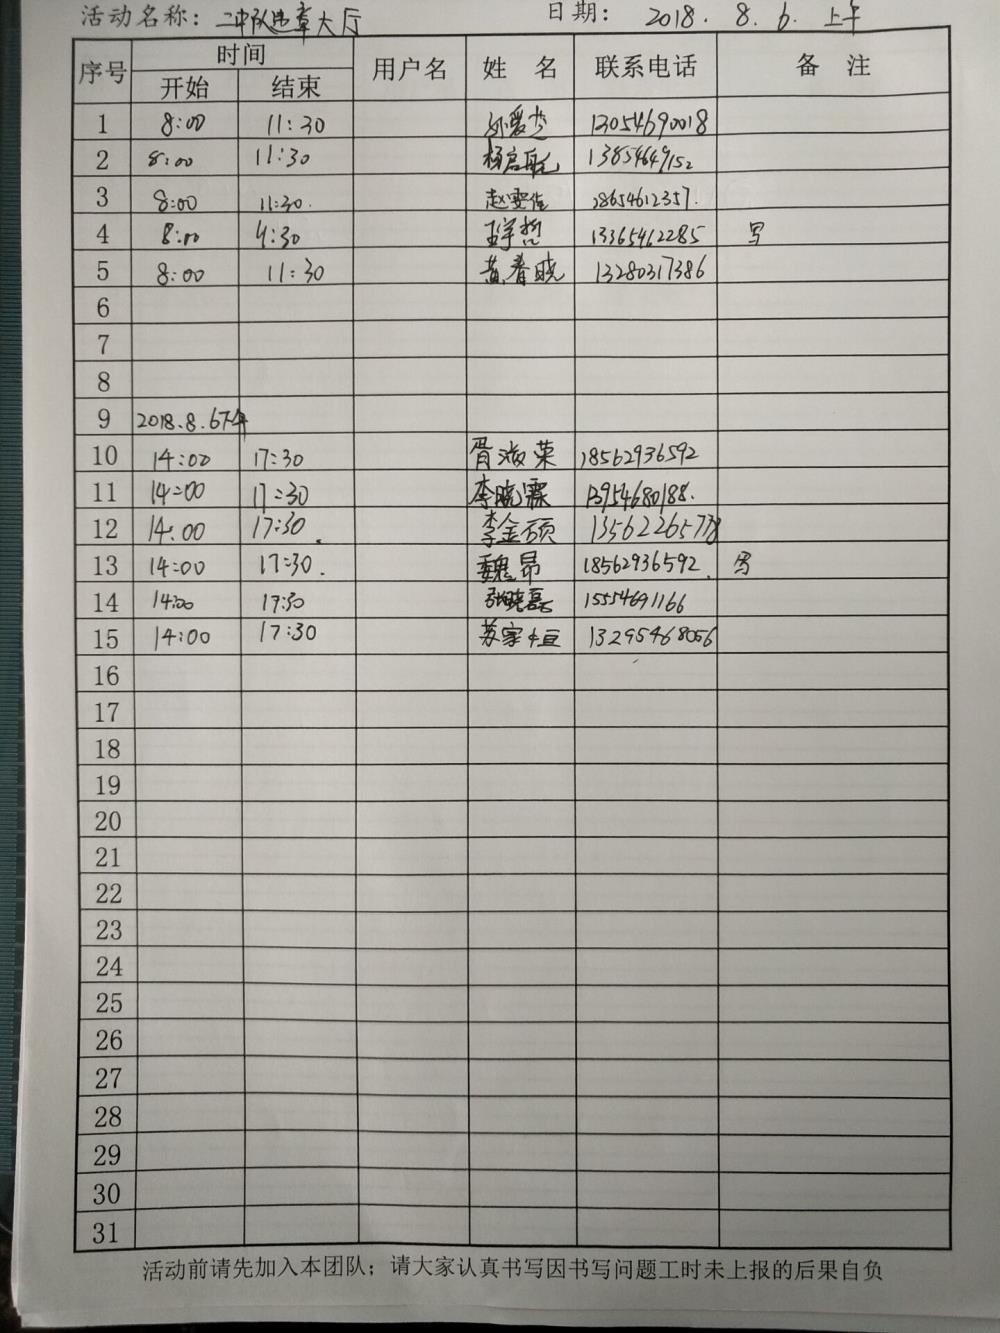 活动名称：二中队违章大厅 日期：2018.8.6.上午
序号 时间 用户名 姓 名 联系电话 备 注
开始 结束
1 8:00 11:30 孙爱杰 13054690018
2 8:00 11:30 杨启航 13854649152
3 8:00 11:30. 赵雯佳 18654612357.
4 8:00 4:30 王学哲 13365462285 写
5 8:00 11:30 黄春晓 13280317386
6
7
8
9 2018.8.6下午
10 14:00 17:30 胥海荣 18562936592
11 14:00 17:30 李晓霖 13954680188.
12 14:00 17:30. 李金硕 1356226577
13 14:00 17:30. 魏昂 18562936592. 写
14 14:00 17:30 张晓磊 15554691166
15 14:00 17:30 苏家恒 13295468056
16
17
18
19
20
21
22
23
24
25
26
27
28
29
30
31
活动前请先加入本团队；请大家认真书写因书写问题工时未上报的后果自负